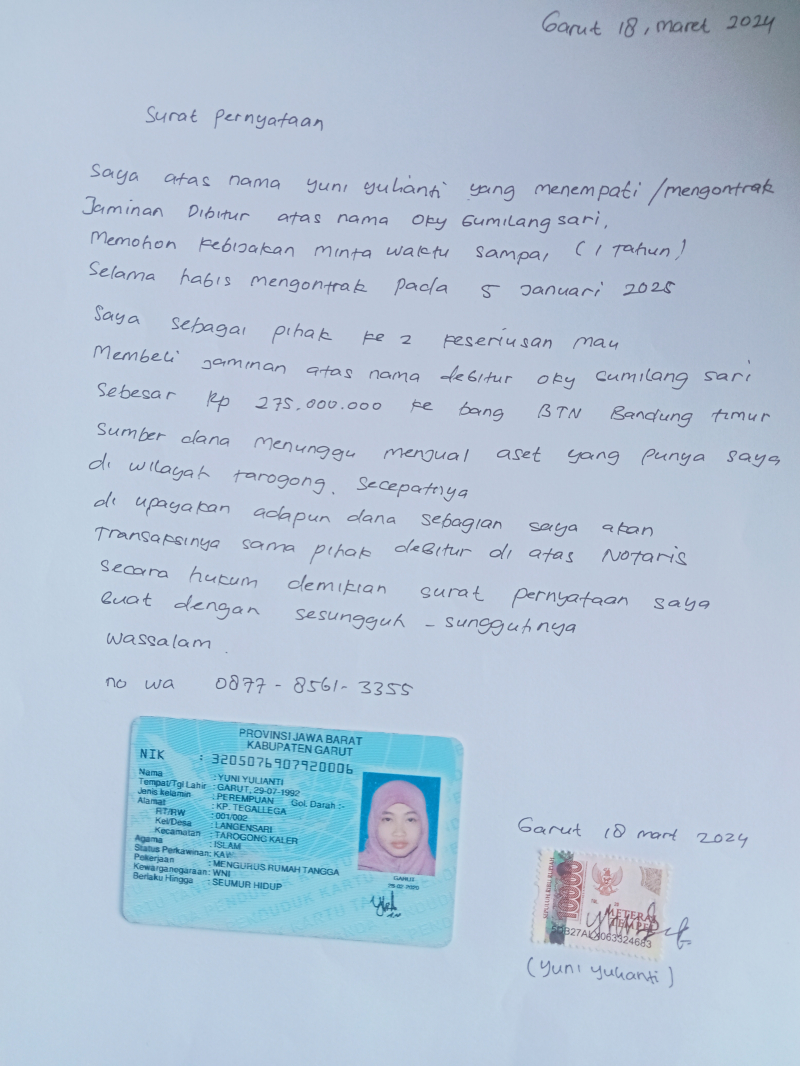 Garut 18, maret 2024
Surat Pernyataan
Saya atas nama yuni yulianti yang menempati /mengontrak
Jaminan Dibitur atas nama Oky Gumilang sari,
Memohon Kebijakan Minta waktu sampai (1 Tahun)
Selama habis mengontrak pada 5 Januari 2025
Saya sebagai pihak ke 2 keseriusan mau
Membeli Jaminan atas nama debitur oky Gumilang sari
Sebesar Rp 275.000.000 ke bang BTN Bandung timur
Sumber dana menunggu menjual aset yang punya saya
di wilayah tarogong. Secepatnya
di upayakan adapun dana sebagian saya akan
Transaksinya sama pihak debitur di atas Notaris
Secara hukum demikian surat pernyataan saya
Buat dengan sesungguh - sungguhnya
Wassalam.
no wa 0877 - 8561 - 3355
PROVINSI JAWA BARAT
KABUPATEN GARUT
NIK : 3205076907920006
Nama : YUNI YULIANTI
Tempat/Tgl Lahir : GARUT, 29-07-1992
Jenis kelamin : PEREMPUAN Gol. Darah :-
Alamat : KP. TEGALLEGA
RT/RW : 001/002
Kel/Desa : LANGENSARI
Kecamatan : TAROGONG KALER
Agama : ISLAM
Status Perkawinan: KAW
Pekerjaan : MENGURUS RUMAH TANGGA
Kewarganegaraan: WNI
Berlaku Hingga : SEUMUR HIDUP
GARUT
Garut 18 mart 2024
SEPULUH RIBU RUPIAH
10000
METERAI
TEMPEL
(Yuni yulianti)